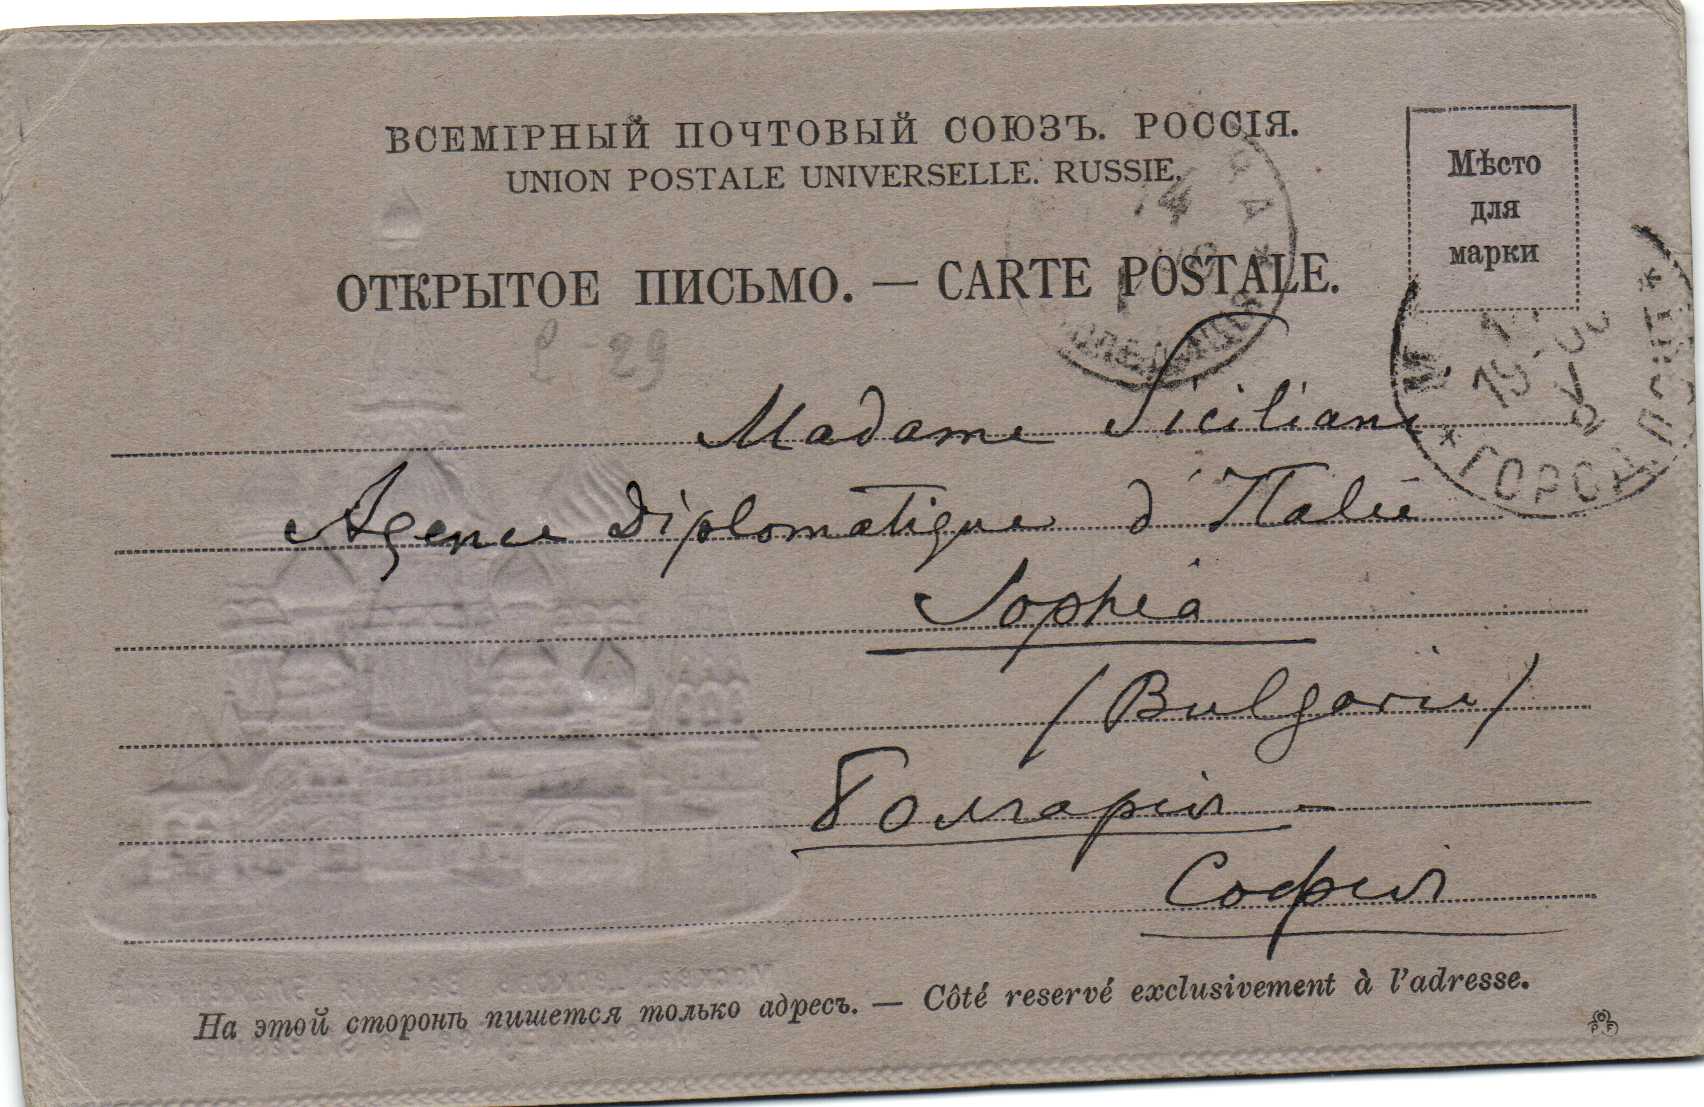 ВСЕМІРНЫЙ ПОЧТОВЫЙ СОЮЗЪ. РОССІЯ.
UNION POSTALE UNIVERSELLE. RUSSIE.
Мѣсто
для
марки
ОТКРЫТОЕ ПИСЬМО. — CARTE POSTALE.
29
Madame Siciliani
Agence Diplomatique d'Italie
Sophia
(Bulgarie)
Болгарія –
Софія
ГОРОД. ПОЧТ
На этой сторонѣ пишется только адресъ. — Côté reservé exclusivement à l'adresse.